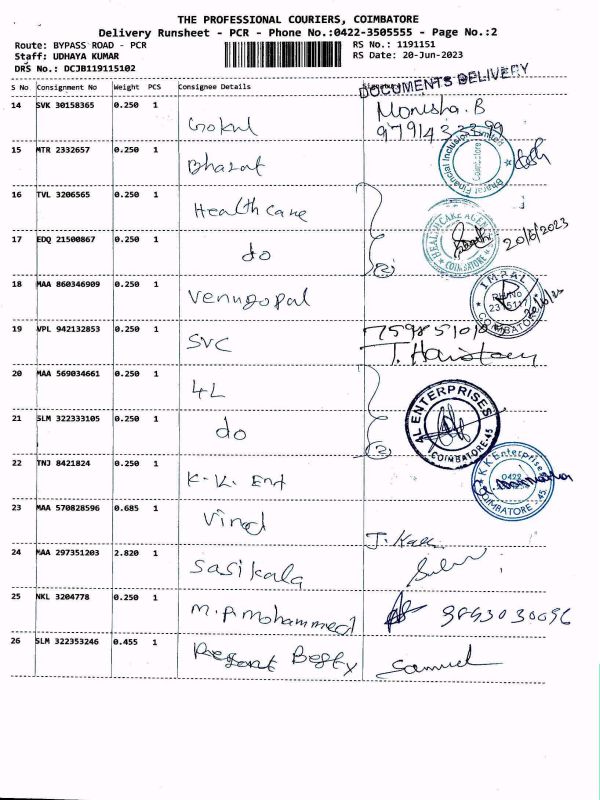 THE PROFESSIONAL COURIERS, COIMBATORE
Delivery Runsheet - PCR - Phone No.:0422-3505555 - Page No.:2
Route: BYPASS ROAD - PCR RS No.: 1191151
Staff: UDHAYA KUMAR RS Date: 20-Jun-2023
DRS No.: DCJB119115102
S No Consignment No Weight PCS Consignee Details
DOCUMENTS DELIVERY
14 SVK 30158365 0.250 1 Gokul Monisha.B
15 MTR 2332657 0.250 1 Bharat
Bharat Financial Inclusion Limited Coimbatore
16 TVL 3206565 0.250 1 Health care
HEALTHCARE AGENC COIMBATORE
20/6/2023
17 EDQ 21500867 0.250 1 do (2)
18 MAA 860346909 0.250 1 Venugopal
IMPAL COIMBATORE
19 VPL 942132853 0.250 1 SVC
20 MAA 569034661 0.250 1 4L
4L ENTERPRISES COIMBATORE-45
21 SLM 322333105 0.250 1 do (2)
22 TNJ 8421824 0.250 1 K.K. Ent
K K Enterprise 0422 COIMBATORE-45
23 MAA 570828596 0.685 1 Vinod
24 MAA 297351203 2.820 1 Sasikala
25 NKL 3204778 0.250 1 M.P. Mohammed
26 SLM 322353246 0.455 1 Samuel